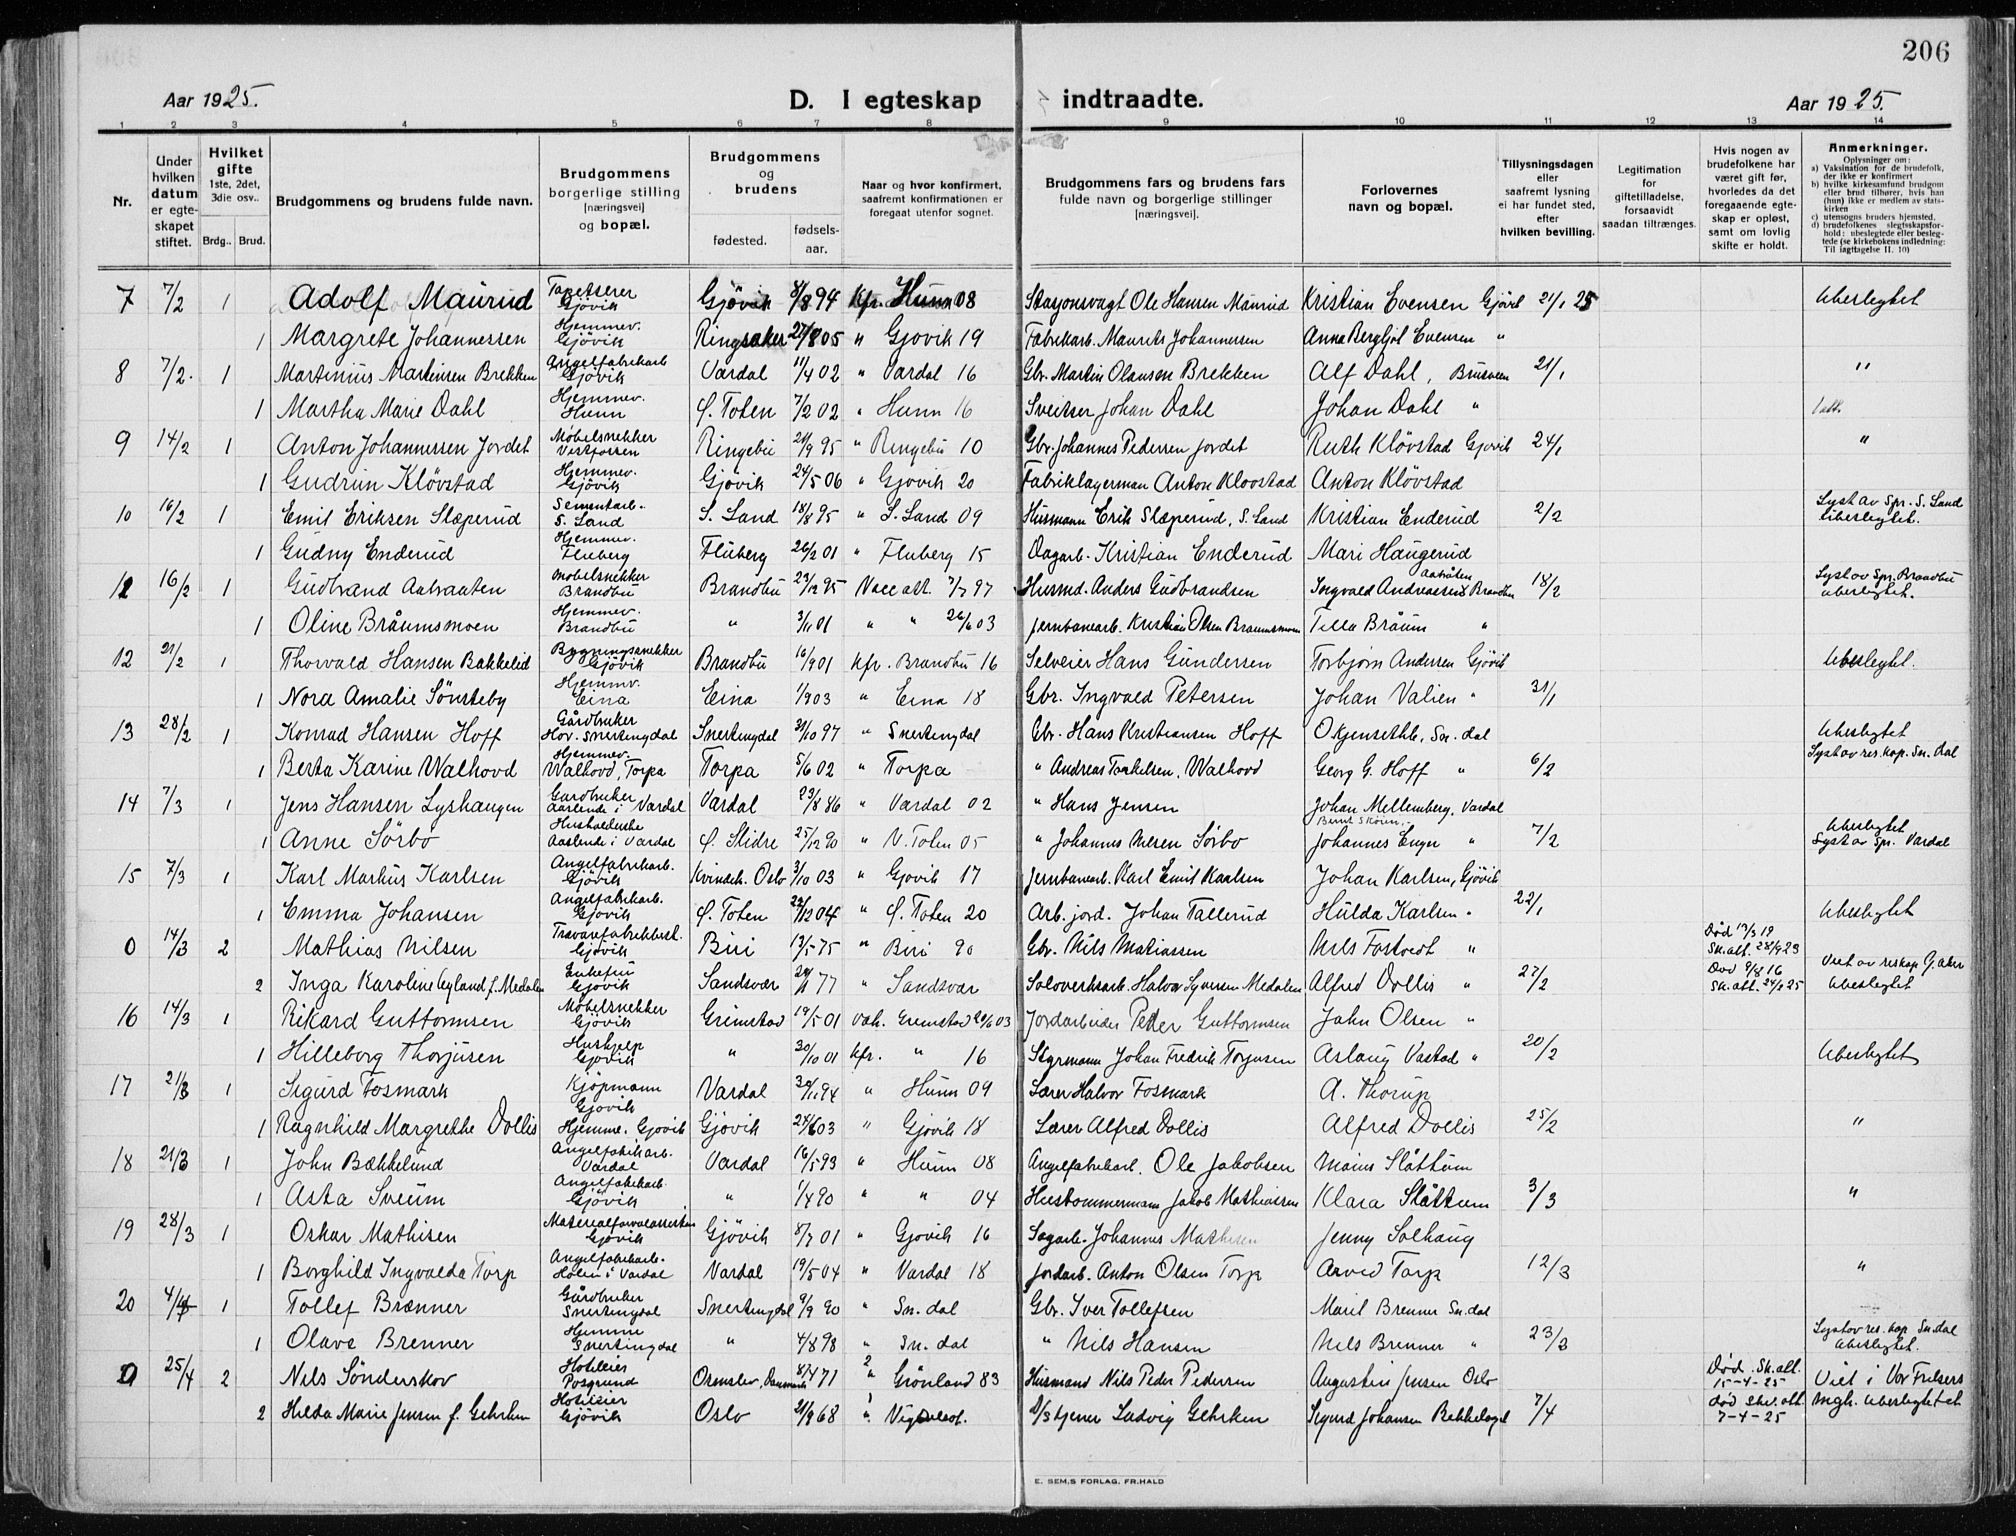 206
Aar 1925. D. I egteskap indtraadte. Aar 1925.
1 2 3 4 5 6 7 8 9 10 11 12 13 14
Nr.
Under hvilken datum er egteskapet stiftet.
Hvilket gifte 1ste, 2det, 3die osv..
Brdg.. Brud.
Brudgommens og brudens fulde navn.
Brudgommens borgerlige stilling [næringsvei] og bopæl.
Brudgommens og brudens
fødested. fødselsaar.
Naar og hvor konfirmert, saafremt konfirmationen er foregaat utenfor sognet.
Brudgommens fars og brudens fars fulde navn og borgerlige stillinger [næringsvei].
Forlovernes navn og bopæl.
Tillysningsdagen eller saafremt lysning ei har fundet sted, efter hvilken bevilling.
Legitimation for giftetilladelse, forsaavidt saadan tiltrænges.
Hvis nogen av brudefolkene har været gift før, hvorledes da det foregaaende egteskap er opløst, samt om lovlig skifte er holdt.
Anmerkninger.
Oplysninger om:
a) Vaksination for de brudefolk, der ikke er konfirmert
b) hvilke kirkesamfund brudgom eller brud tilhører, hvis han (hun) ikke er medlem av statskirken
c) utensogns bruders hjemsted.
d) brudefolkenes slegtsskapsforhold: ubeslegtede eller beslegtede (se kirkebokens indledning: Til iagttagelse II. 10)
7 7/2 1 Adolf Maurud Tapetserer Gjövik Gjövik 8/8 94 Kfr. Hunn 08 Stasjonsvagt Ole Hansen Maurud Kristian Evensen Gjövik 21/1 25 Ubeslegtet
1 Margrete Johannessen Hjemmev. Gjövik Ringsaker 27/8 05 " Gjovik 19 Fabrikarb. Maurits Johannessen Anna Bergljot Evensen "
8 7/2. 1 Martinius Martinsen Brekken Angelfabrikarb Gjövik Vardal 11/4 02 " Vardal 16 Gbr. Martin Olausen Brekken Alf Dahl, Brusveen 21/1 "
1 Martha Marie Dahl Hjemmev. Hunn Ö. Toten 7/2 02 " Hunn 16 Sveitser Johan Dahl Johan Dahl "
9 14/2 1 Anton Johannessen Jordet Möbelsnekker Vestfossen Ringebu 21/9 95 " Ringebu 10 Gbr. Johannes Pedersen Jordet Ruth Klövstad Gjovik 24/1 "
1 Gudrun Klövstad Hjemmev. Gjövik Gjövik 24/5 06 " Gjovik 20 Fabriklagerman Anton Klovstad Anton Klövstad
10 16/2 1 Emil Eriksen Slæperud Sementarb. S. Land S. Land 18/8 95 " S. Land 09 Husmann Erik Slæperud, S. Land Kristian Enderud 2/2 Lyst av Spr. S. Land Ubeslegtet.
1 Gudny Enderud Hjemmev. Fluberg Fluberg 26/2 01 " Fluberg 15 Dagarb. Kristian Enderud Mari Haugerud
11 16/2 1 Gudbrand Aalraaten Möbelsnekker Brandbu Brandbu 23/12 95 Vacc att. 7/7 97 Husmd. Anders Gudbrandsen Ingvald Andreassen Brandbu 18/2 Lyst av Spr. Brandbu ubeslegtet.
1 Oline Bråumsmoen Hjemmev. Brandbu " 3/11 01 " " 26/6 03 Jernbanearb. Kristian Olsen Braumsmoen Tilla Bråum "
12 21/2 1 Thorvald Hansen Bakkelid Bygningssnekker Gjövik Brandbu 16/9 01 Kfr. Brandbu 16 Selveier Hans Gundersen Torbjorn Andersen Gjövik Ubeslegtet.
1 Nora Amalie Sönsteby Hjemmv. Eina Eina 1/9 03 " Eina 18 Gbr. Ingvald Petersen Johan Valien " 31/1
13 28/2 1 Konrad Hansen Hoff Gårdbruker Hov. Snertingdal Snertingdal 31/10 97 " Snertingdal Gbr. Hans Kristiansen Hoff Sn. dal Ubeslegtet
1 Berta Karine Walhovd Hjemmev. Walhovd, Torpa Torpa 5/6 02 " Torpa " Andreas Torkelsen. Walhovd Georg G. Hoff " 6/2 Lyst av res. kap. Sn. dal
14 7/3 1 Jens Hansen Lyshaugen Gardbruker i Vardal Vardal 23/8 86 " Vardal 02 " Hans Jensen Johan Mellemberg, Vardal
1 Anne Sörbö Husholderske i Vardal Ö. Slidre 25/12 90 " V. Toten 05 " Johannes Nilsen Sörbö Johannes Enger " 7/2 Ubeslegtet Lyst av Spr. Vardal
15 7/3 1 Karl Markus Karlsen Angelfabrikarb. Gjövik Kvindeh. Oslo 3/10 03 " Gjovik 17 Jernbanearb. Karl Emil Karlsen Johan Karlsen, Gjövik
1 Emma Johansen Angelfabrikarb. Gjövik Ö. Toten 22/12 04 " Ö. Toten 20 Arb. jord. Johan Tallerud Hulda Karlsen " 22/1 Ubeslegtet
0 14/3 2 Mathias Nilsen Gjövik Biri 13/5 75 " Biri 90 Gbr. Nils Matiassen Nils Fostvedt " Död 13/3 19 Sk. att. 28/9 23
2 Inga Karoline f. Medalen Enkefru Gjövik Sandsvær 77 " Sandsvær Halvor Syversen Medalen Alfred Dollis " 27/2 Död 9/8 16 Sk. att. 24/2 25 Viet av res kap G. aker Ubeslegtet
16 14/3 1 Rikard Guttormsen Möbelsnekker Gjövik Grimstad 19/5 01 vak. Grimstad 20/6 03 Jordarbeider Peder Guttormsen John Olsen "
1 Hilleborg Thorjusen Hushjelp Gjövik " 30/10 01 kfr. " 16 Styrmann Johan Fredrik Torjusen Aslaug Vastad " 20/2 Ubeslegtet
17 21/3 1 Sigurd Fosmark Kjöpmann Gjövik Vardal 30/11 94 " Hunn 09 Lærer Halvor Fosmark A. Thorup
1 Ragnhild Margrethe Dollis Hjemme. Gjovik Gjövik 24/6 03 " Gjövik 18 Lærer Alfred Dollis Alfred Dollis 25/2 "
18 21/3 1 John Bækkelund Angelfabrikarb. Vardal Vardal 16/5 93 " Hunn 08 Angelfabrikarb. Ole Jakobsen Maius Slåttum
1 Asta Sveum Angelfabrikarb Gjövik " 1/4 90 " " 04 Hustommermann Jakob Mathiassen Klara Slåttum 3/3 "
19 28/3 1 Oskar Mathisen Gjövik Gjövik 8/7 01 " Gjovik 16 Sagarb. Johannes Mathisen Jenny Solhaug
1 Borghild Ingvalda Torp Angelfabrikarb. Holen i Vardal Vardal 19/5 04 " Vardal 18 Jordarb. Anton Olsen Torp Arved Torp 12/3 "
20 4/4 1 Tollef Brenner Gårdbruker Snertingdal Snertingdal 9/9 90 " Sn. dal Gbr. Iver Tollefsen Marit Brenner Sn. dal
1 Olave Brenner Hjemme Snertingdal " 4/8 98 " Sn. dal " Nils Hansen Nils Brenner " 23/2 Lyst av res. kap. Sn. dal Ubeslegtet.
0 25/4 2 Nils Sönderskov Hotileier Posgrund Ormslev, Danmark 8/4 71 " Grönland 83 Husmand Nils Peder Pedersen Augustin Jensen Oslo Död. Sk. att. 15-4-25 Viet i Vor Frelsers
2 Hilda Marie Jensen f. Gehrken Hotileier Gjövik Oslo 21/9 68 " Ludvig Gehrken Sigurd Johansen Bekkelaget 7/4 död Skv. att. 7-4-25 Ubeslegtet
E. SEM,S FORLAG, FR.HALD